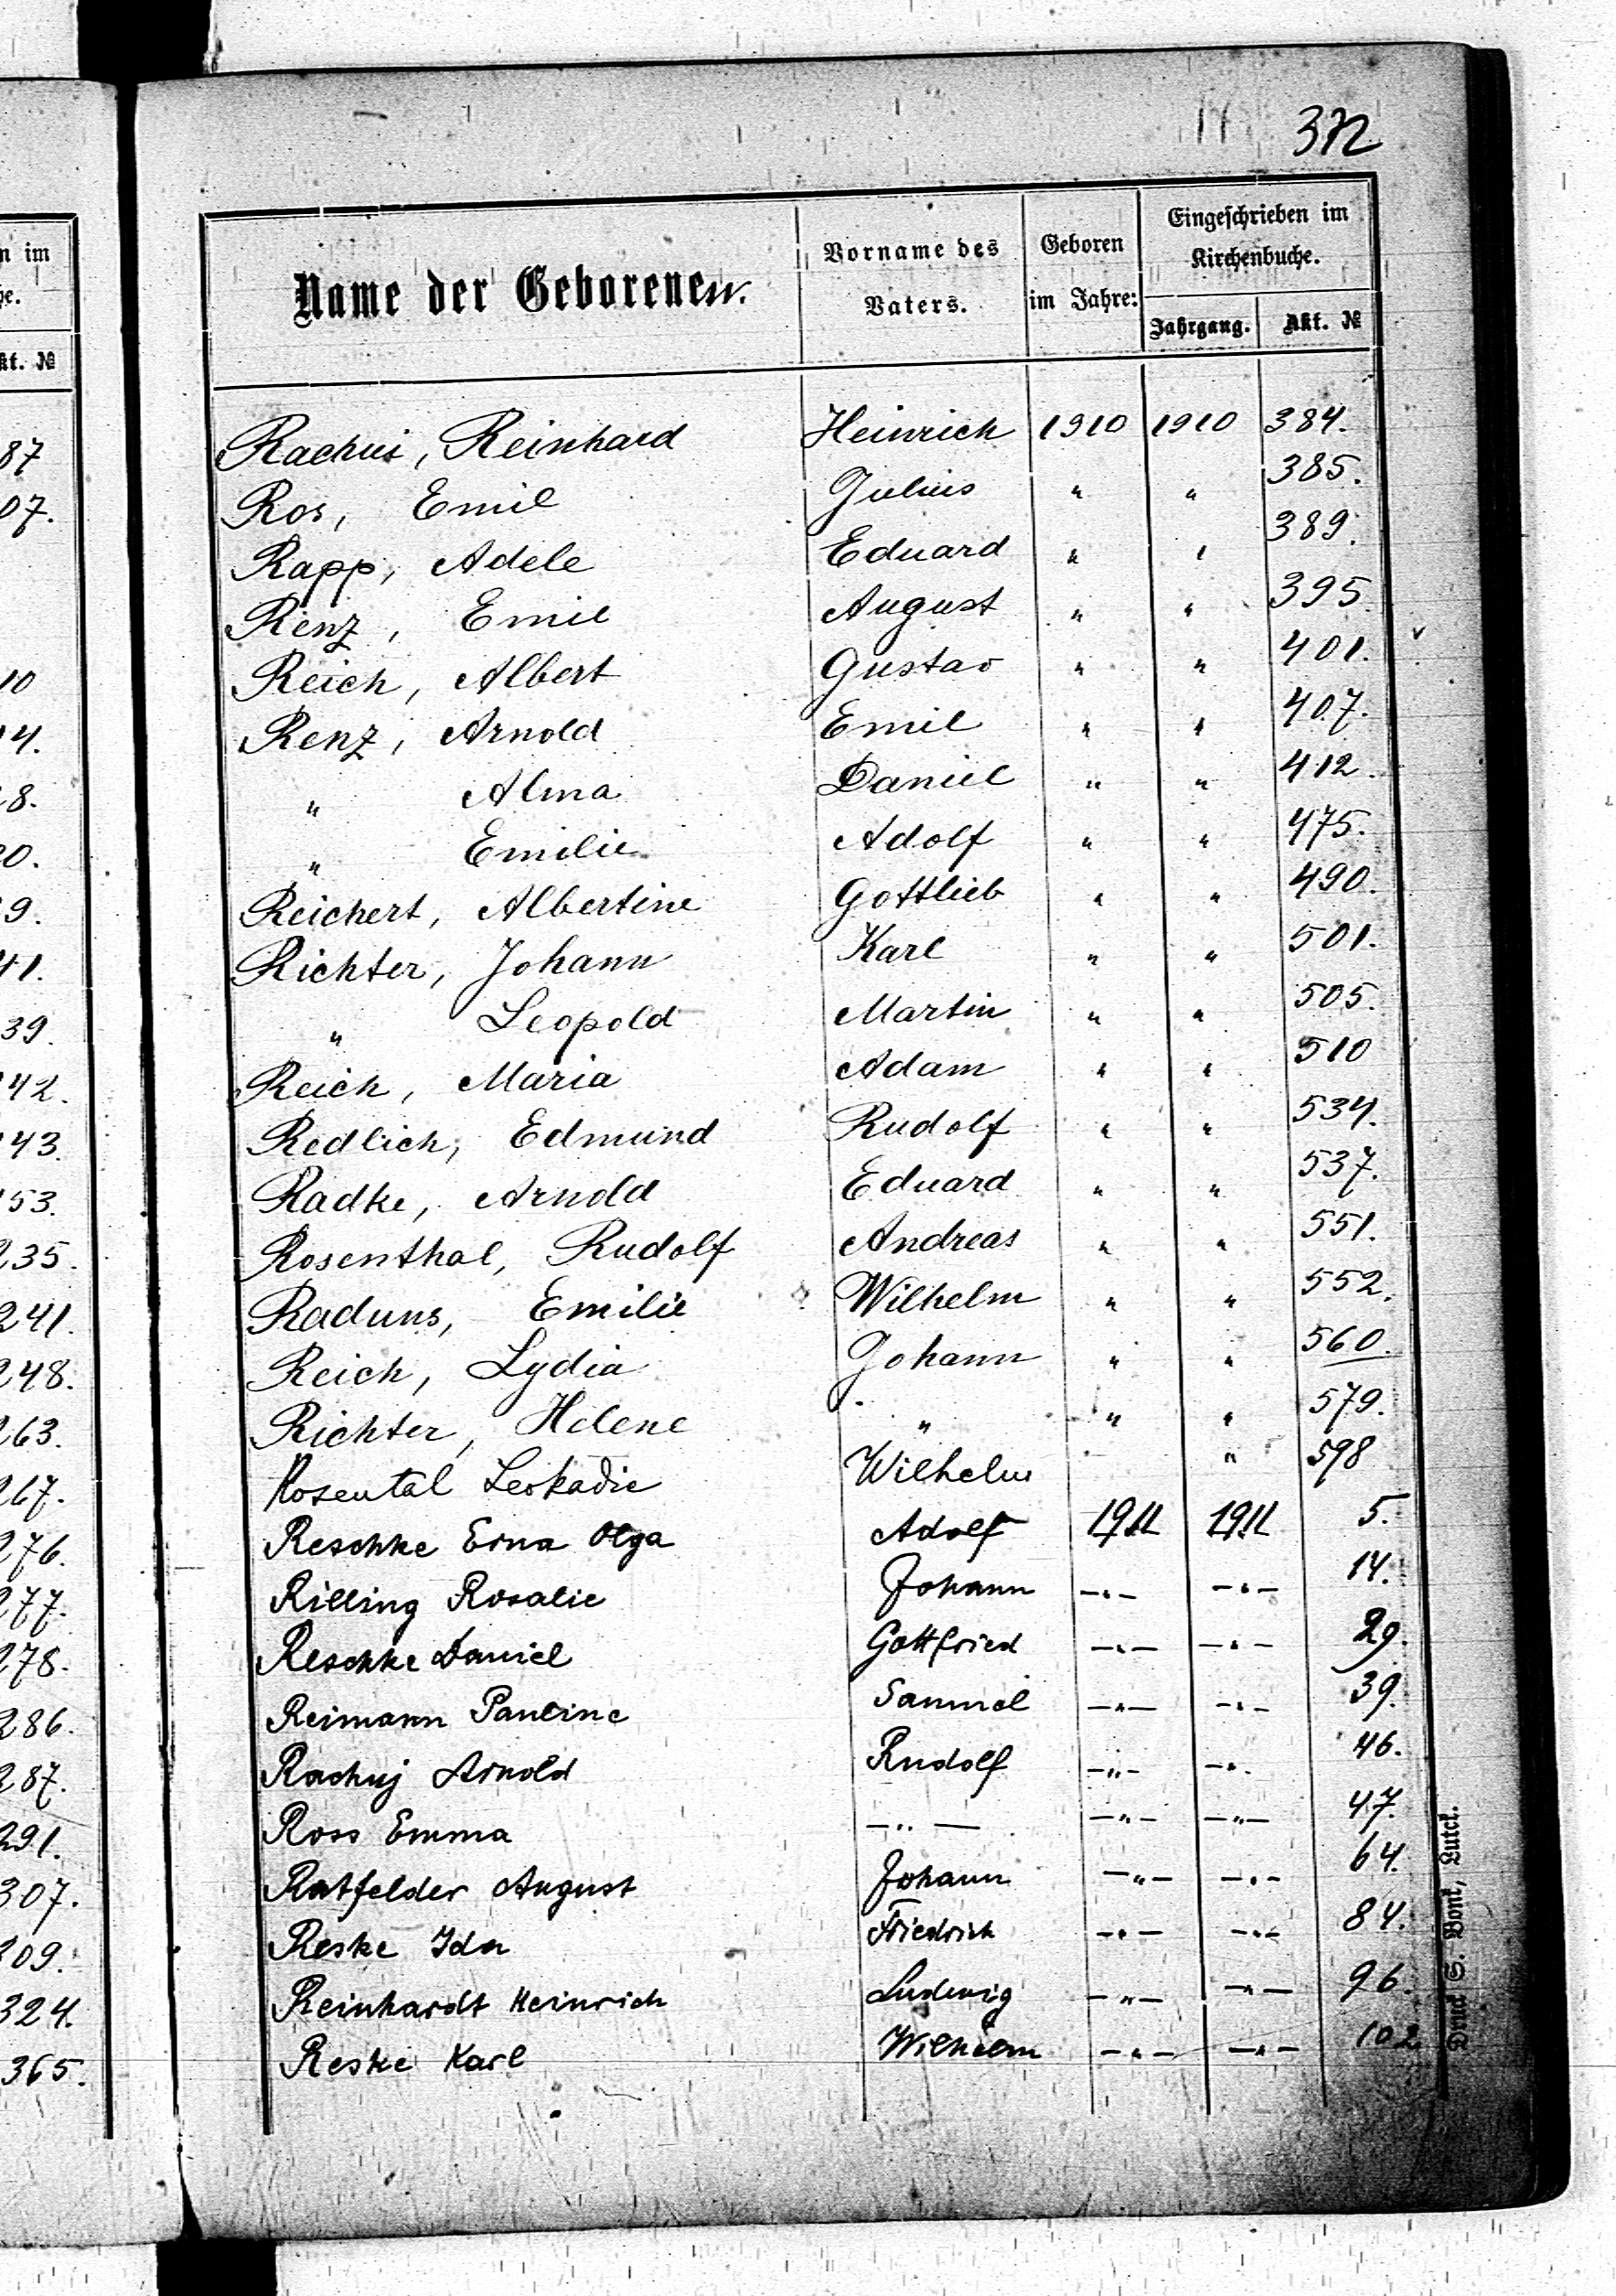 372
Name der Geborenen.
Vorname des Vaters.
Geboren im Jahre:
Eingeschrieben im Kirchenbuche.
Jahrgang. Akt. №
Rachui, Reinhard Heinrich 1910 1910 384.
Ros, Emil Julius " " 385.
Rapp, Adele Eduard " " 389.
Renz, Emil August " " 395.
Reich, Albert Gustav " " 401.
Renz, Arnold Emil " " 407.
" Alma Daniel " " 412.
" Emilie Adolf " " 475.
Reichert, Albertine Gottlieb " " 490.
Richter, Johann Karl " " 501.
" Leopold Martin " " 505.
Reich, Maria Adam " " 510
Redlich, Edmund Rudolf " " 534.
Radke, Arnold Eduard " " 537.
Rosenthal, Rudolf Andreas " " 551.
Raduns, Emilie Wilhelm " " 552.
Reich, Lydia Johann " " 560.
Richter, Helene " " " 579.
Rosental Leokadie Wilhelm " 598
Reschke Erna Olga Adolf 1911 1911 5.
Rilling Rosalie Johann —"— —"— 14.
Reschke Daniel Gottfried —"— —"— 29.
Reimann Pauline Samuel —"— —"— 39.
Rachuj Arnold Rudolf —"— —"— 46.
Ross Emma —"— —"— —"— 47.
Ratfelder August Johann —"— —"— 64.
Reske Ida Friedrich —"— —"— 84.
Reinhardt Heinrich Ludwig —"— —"— 96.
Reske Karl Wilhelm —"— —"— 102
Druck S. Bonk, Lutck.
n im
he.
Akt. №
87
07.
10
14.
8.
0.
9.
41.
39.
42.
43.
153.
235.
241.
248.
263.
267.
276.
277.
278.
286.
287.
291.
307.
309.
324.
365.